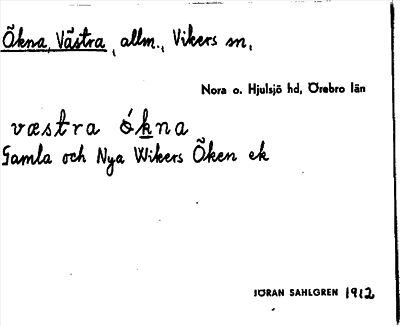 Ökna, Västra, allm., Vikers sn,
Nora o. Hjulsjö hd, Örebro län
væstra ókna
Gamla och Nya Wikers Öken ek
JÖRAN SAHLGREN 1912